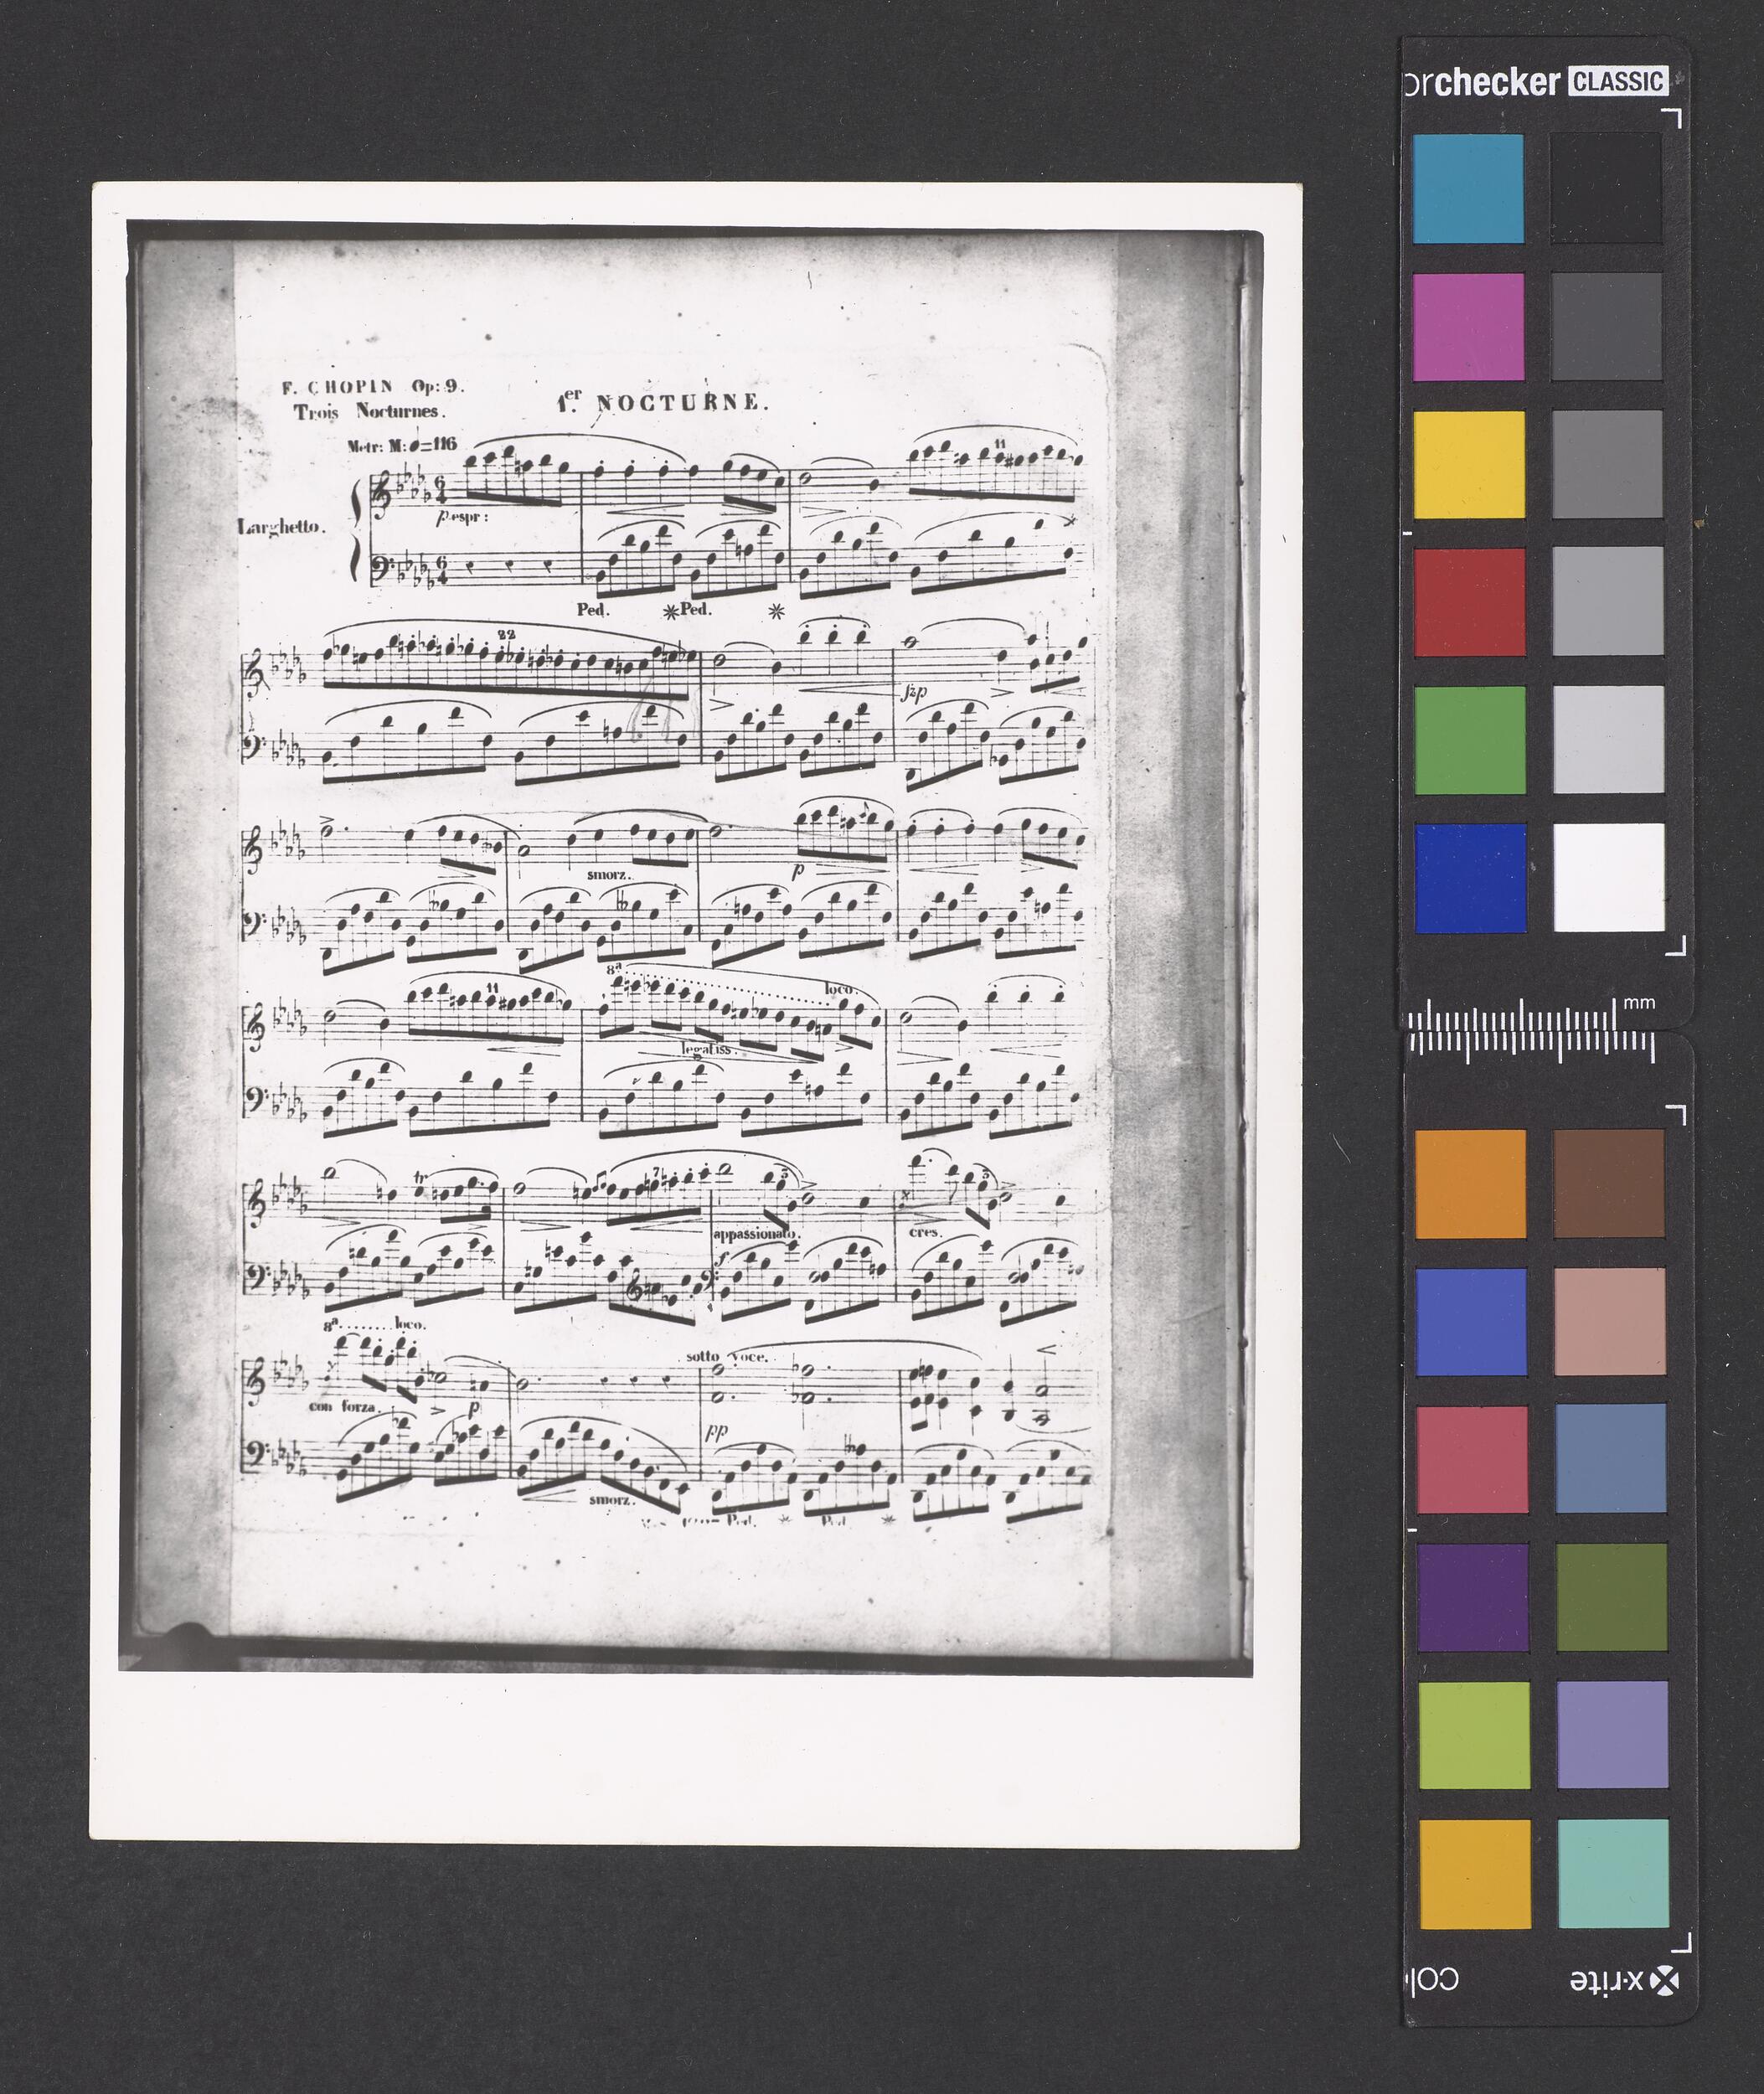 orchecker CLASSIC
F. CHOPIN Op: 9.
Trois Nocturnes.
1er. NOCTURNE.
Metr: M: 𝅘𝅥=116
11
6
4
p espr:
Larghetto.
6
4
Ped. * Ped. *
22
fzp
smorz.
p
8a loco.
11
legatiss.
tr 7 3 3
appassionato. cres.
f
8a loco.
sotto voce.
con forza. p
pp
smorz.
Ped. * Ped. *
mm
x·rite
col